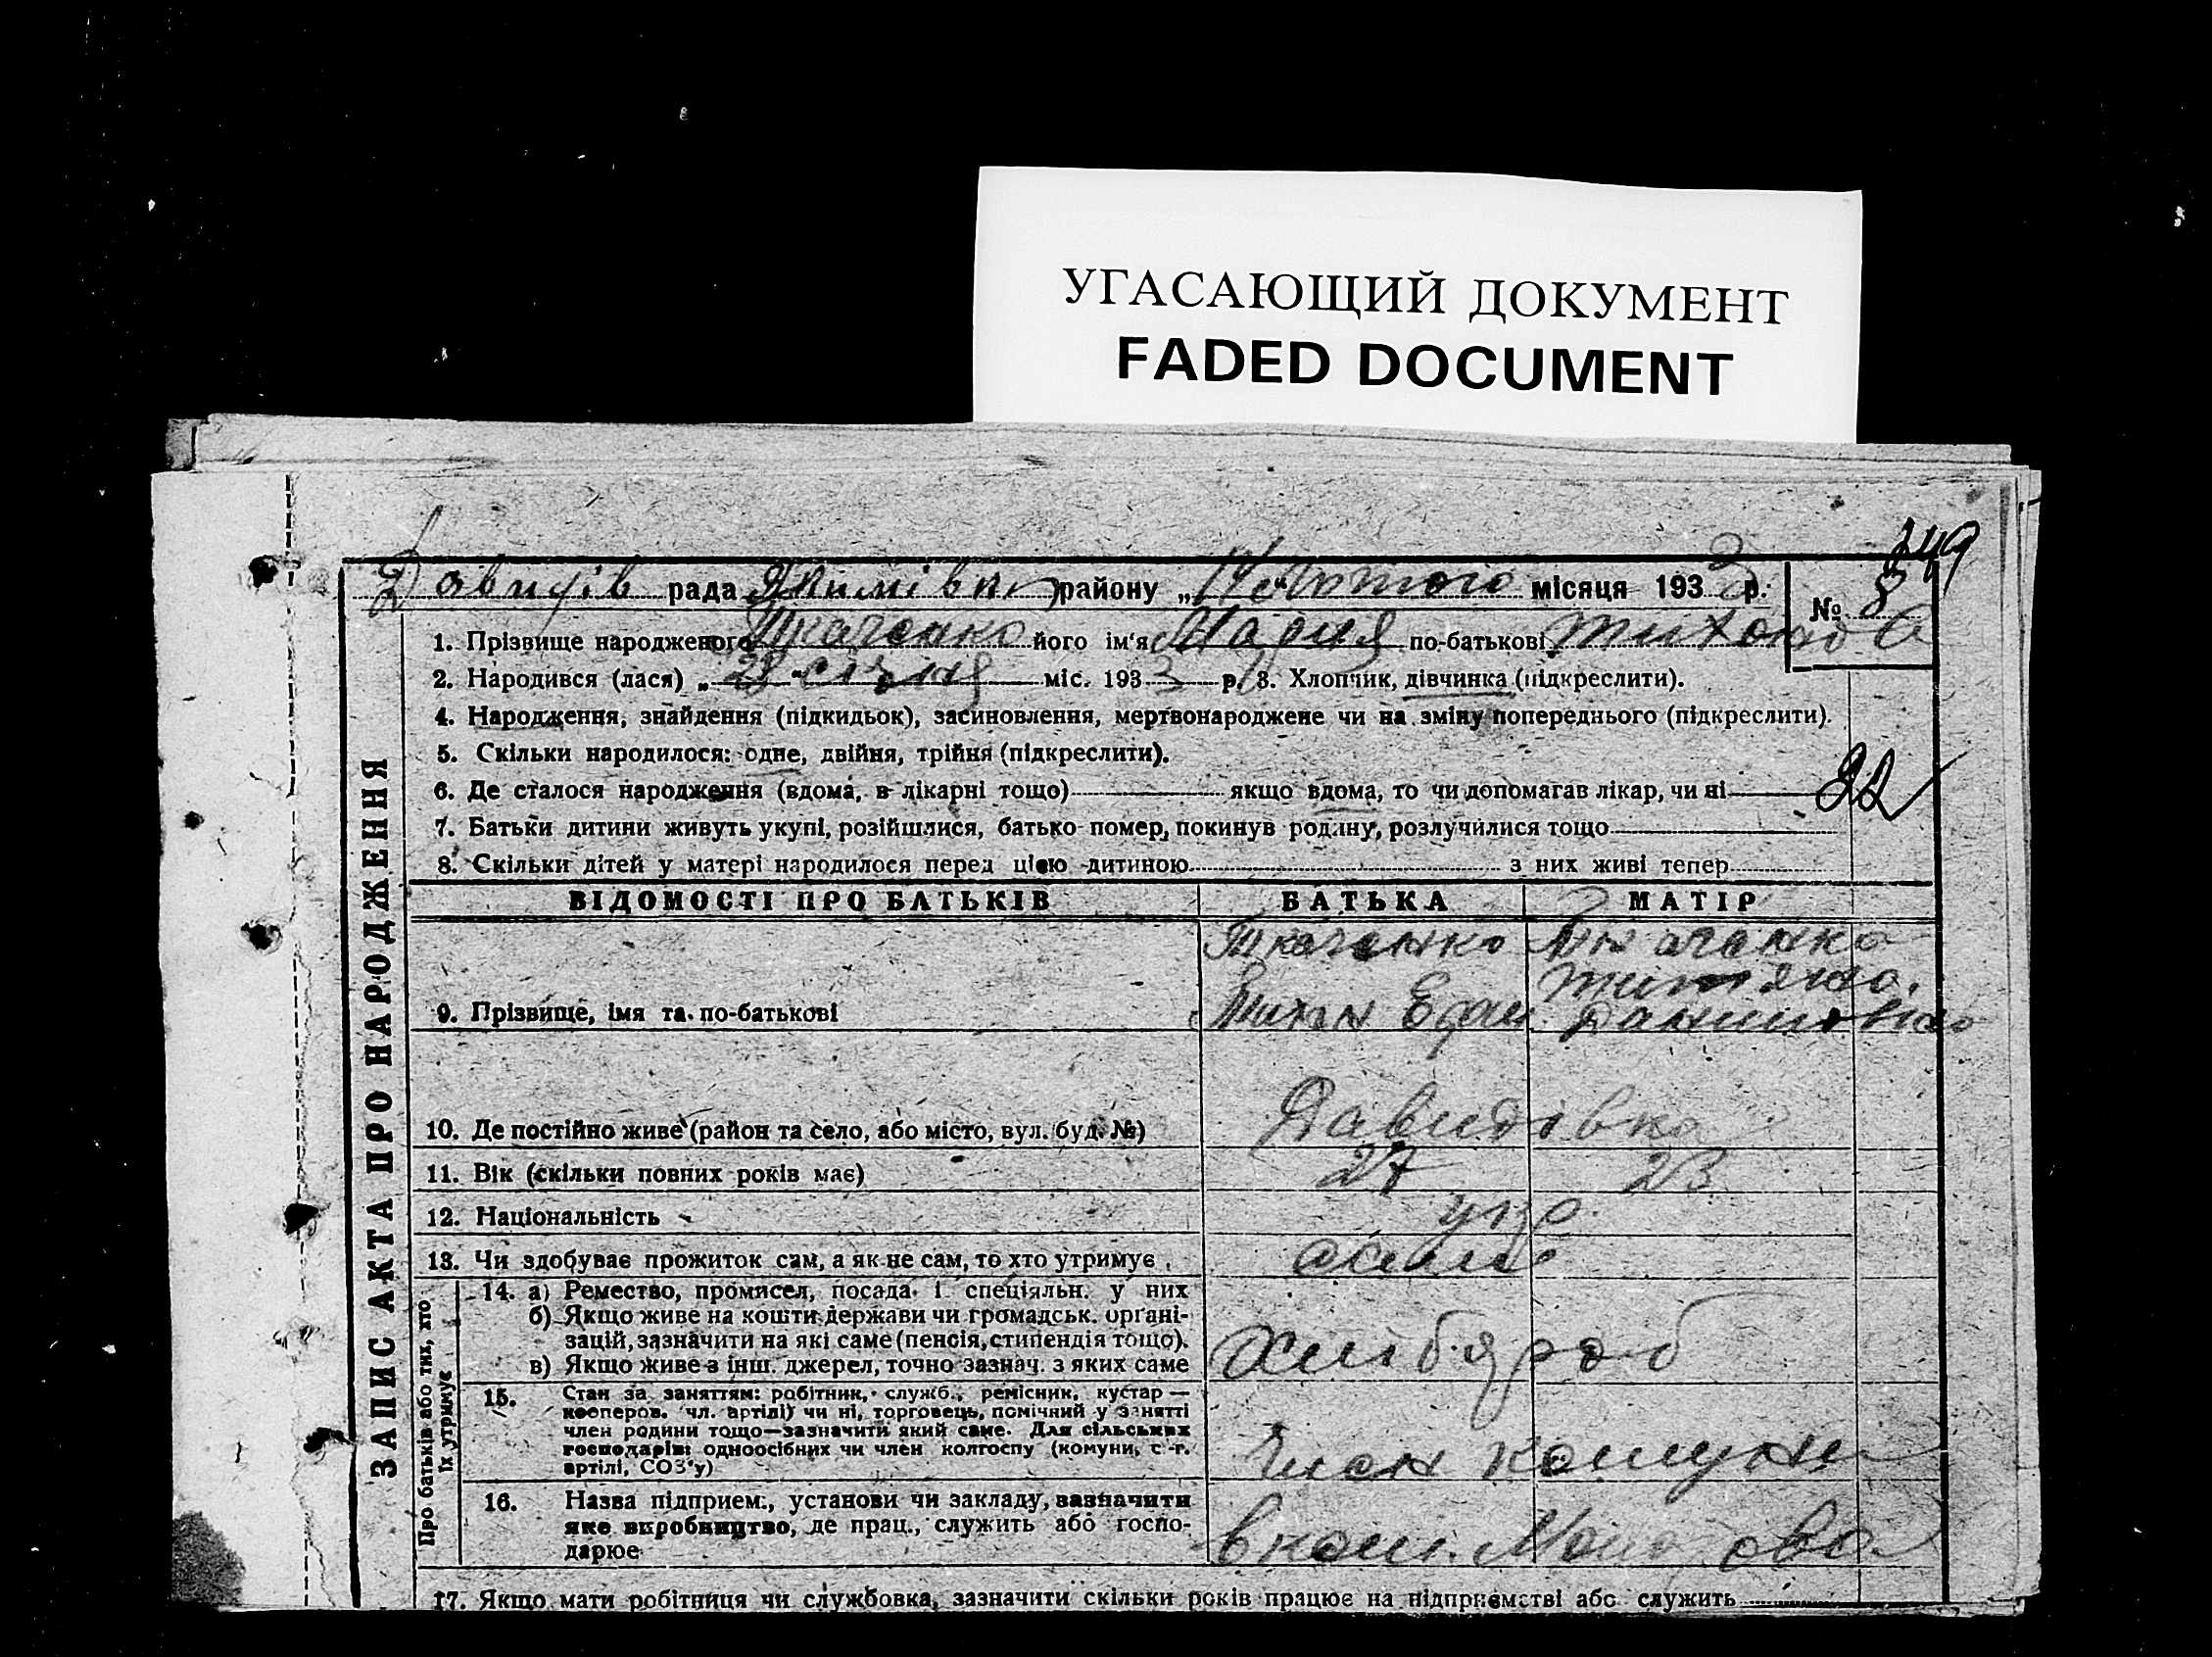 УГАСАЮЩИЙ ДОКУМЕНТ
FADED DOCUMENT
149
Давидів рада Якимівк району „14“ лютого місяця 1933 р. № 8
1. Прізвище народженого Ткаченко його ім'я Мария по-батькові Тихонов
2. Народився (лася) „28“ січня міс. 1933 р. 3. Хлопчик, дівчинка (підкреслити).
4. Народження, знайдення (підкидьок), засиновлення, мертвонароджене чи на зміну попереднього (підкреслити).
5. Скільки народилося: одне, двійня, трійня (підкреслити).
6. Де сталося народження (вдома, в лікарні тощо) якщо вдома, то чи допомагав лікар, чи ні
22
7. Батьки дитини живуть укупі, розійшлися, батько помер, покинув родину, розлучилися тощо
8. Скільки дітей у матері народилося перед цією дитиною з них живі тепер
ЗАПИС АКТА ПРО НАРОДЖЕННЯ
ВІДОМОСТІ ПРО БАТЬКІВ БАТЬКА МАТІР
Ткаченко Ткаченко
9. Прізвище, імя та по-батькові Тихон
10. Де постійно живе (район та село, або місто, вул. буд. №) Давидовка
11. Вік (скільки повних років має) 27 23
12. Національність укр.
13. Чи здобуває прожиток сам, а як не сам, то хто утримує
Про батьків або тих, хто
їх утримує
14. а) Ремество, промисел, посада і спеціяльн. у них
б) Якщо живе на кошти держави чи громадськ. органі-
зацій, зазначити на які саме (пенсія, стипендія тощо).
в) Якщо живе з інш. джерел, точно зазнач. з яких саме Хлібороб
15. Стан за заняттям: робітник, служб., ремісник, кустар —
кооперов. чл. артілі) чи ні, торговець, помічний у занятті
член родини тощо—зазначити який саме. Для сільських
господарів: одноосібних чи член колгоспу (комуни, с.-г.
артілі, СОЗ'у) Член комуни
16. Назва підприєм., установи чи закладу, зазначити
яке виробництво, де прац., служить або госпо-
дарює
17. Якщо мати робітниця чи службовка, зазначити скільки років працює на підприємстві або служить